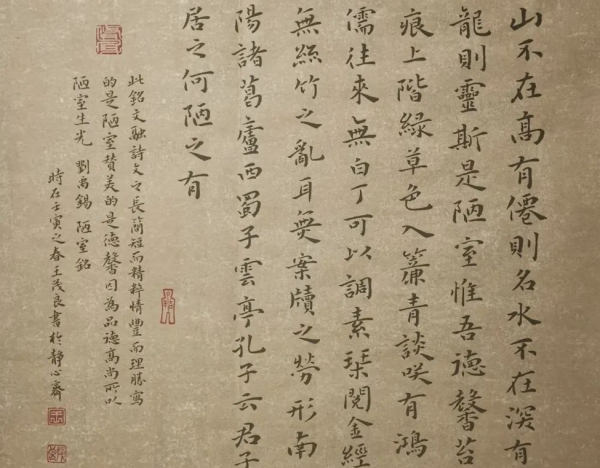 山不在高有僊則名水不在深有
龍則靈斯是陋室惟吾德馨苔
痕上階綠草色入簾青談咲有鴻
儒往來無白丁可以調素琹閱金經
無絲竹之亂耳無案牘之勞形南
陽諸葛廬西蜀子雲亭孔子云君子
居之何陋之有
此銘文融詩文之長簡短而精粹情豐而理勝寫
的是陋室贊美的是德馨因為品德高尚所以
陋室生光 劉禹錫 陋室銘
時在壬寅之春王茂良書於靜心齋